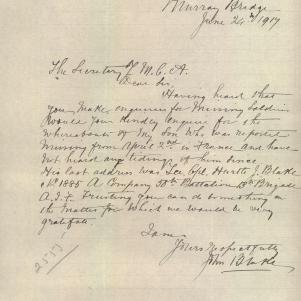 Murray Bridge
June 24th 1917
The Secretary Y M. C. A.
Dear Sir,
Having heard that
you make enquiries for Missing Soldiers
would you kindly enquire for the
whereabouts of My Son who was reported
Missing from April 2nd in France and have
not heard any tidings of him since
His last address was Lce Cpl. Hurtle J. Blake
No 1885 A Company 50th Battalion 13th Brigade
A.I.F. Trusting you can do something in
the matter for which we would be very
gratefull
I am
Yours respectfully
John Blake